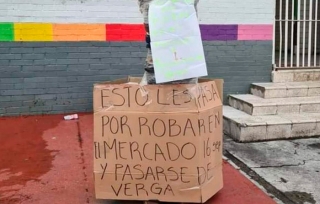 ESTO LES PASA
POR ROBAR EN
MERCADO 16 SEP
Y PASARSE DE
VERGA